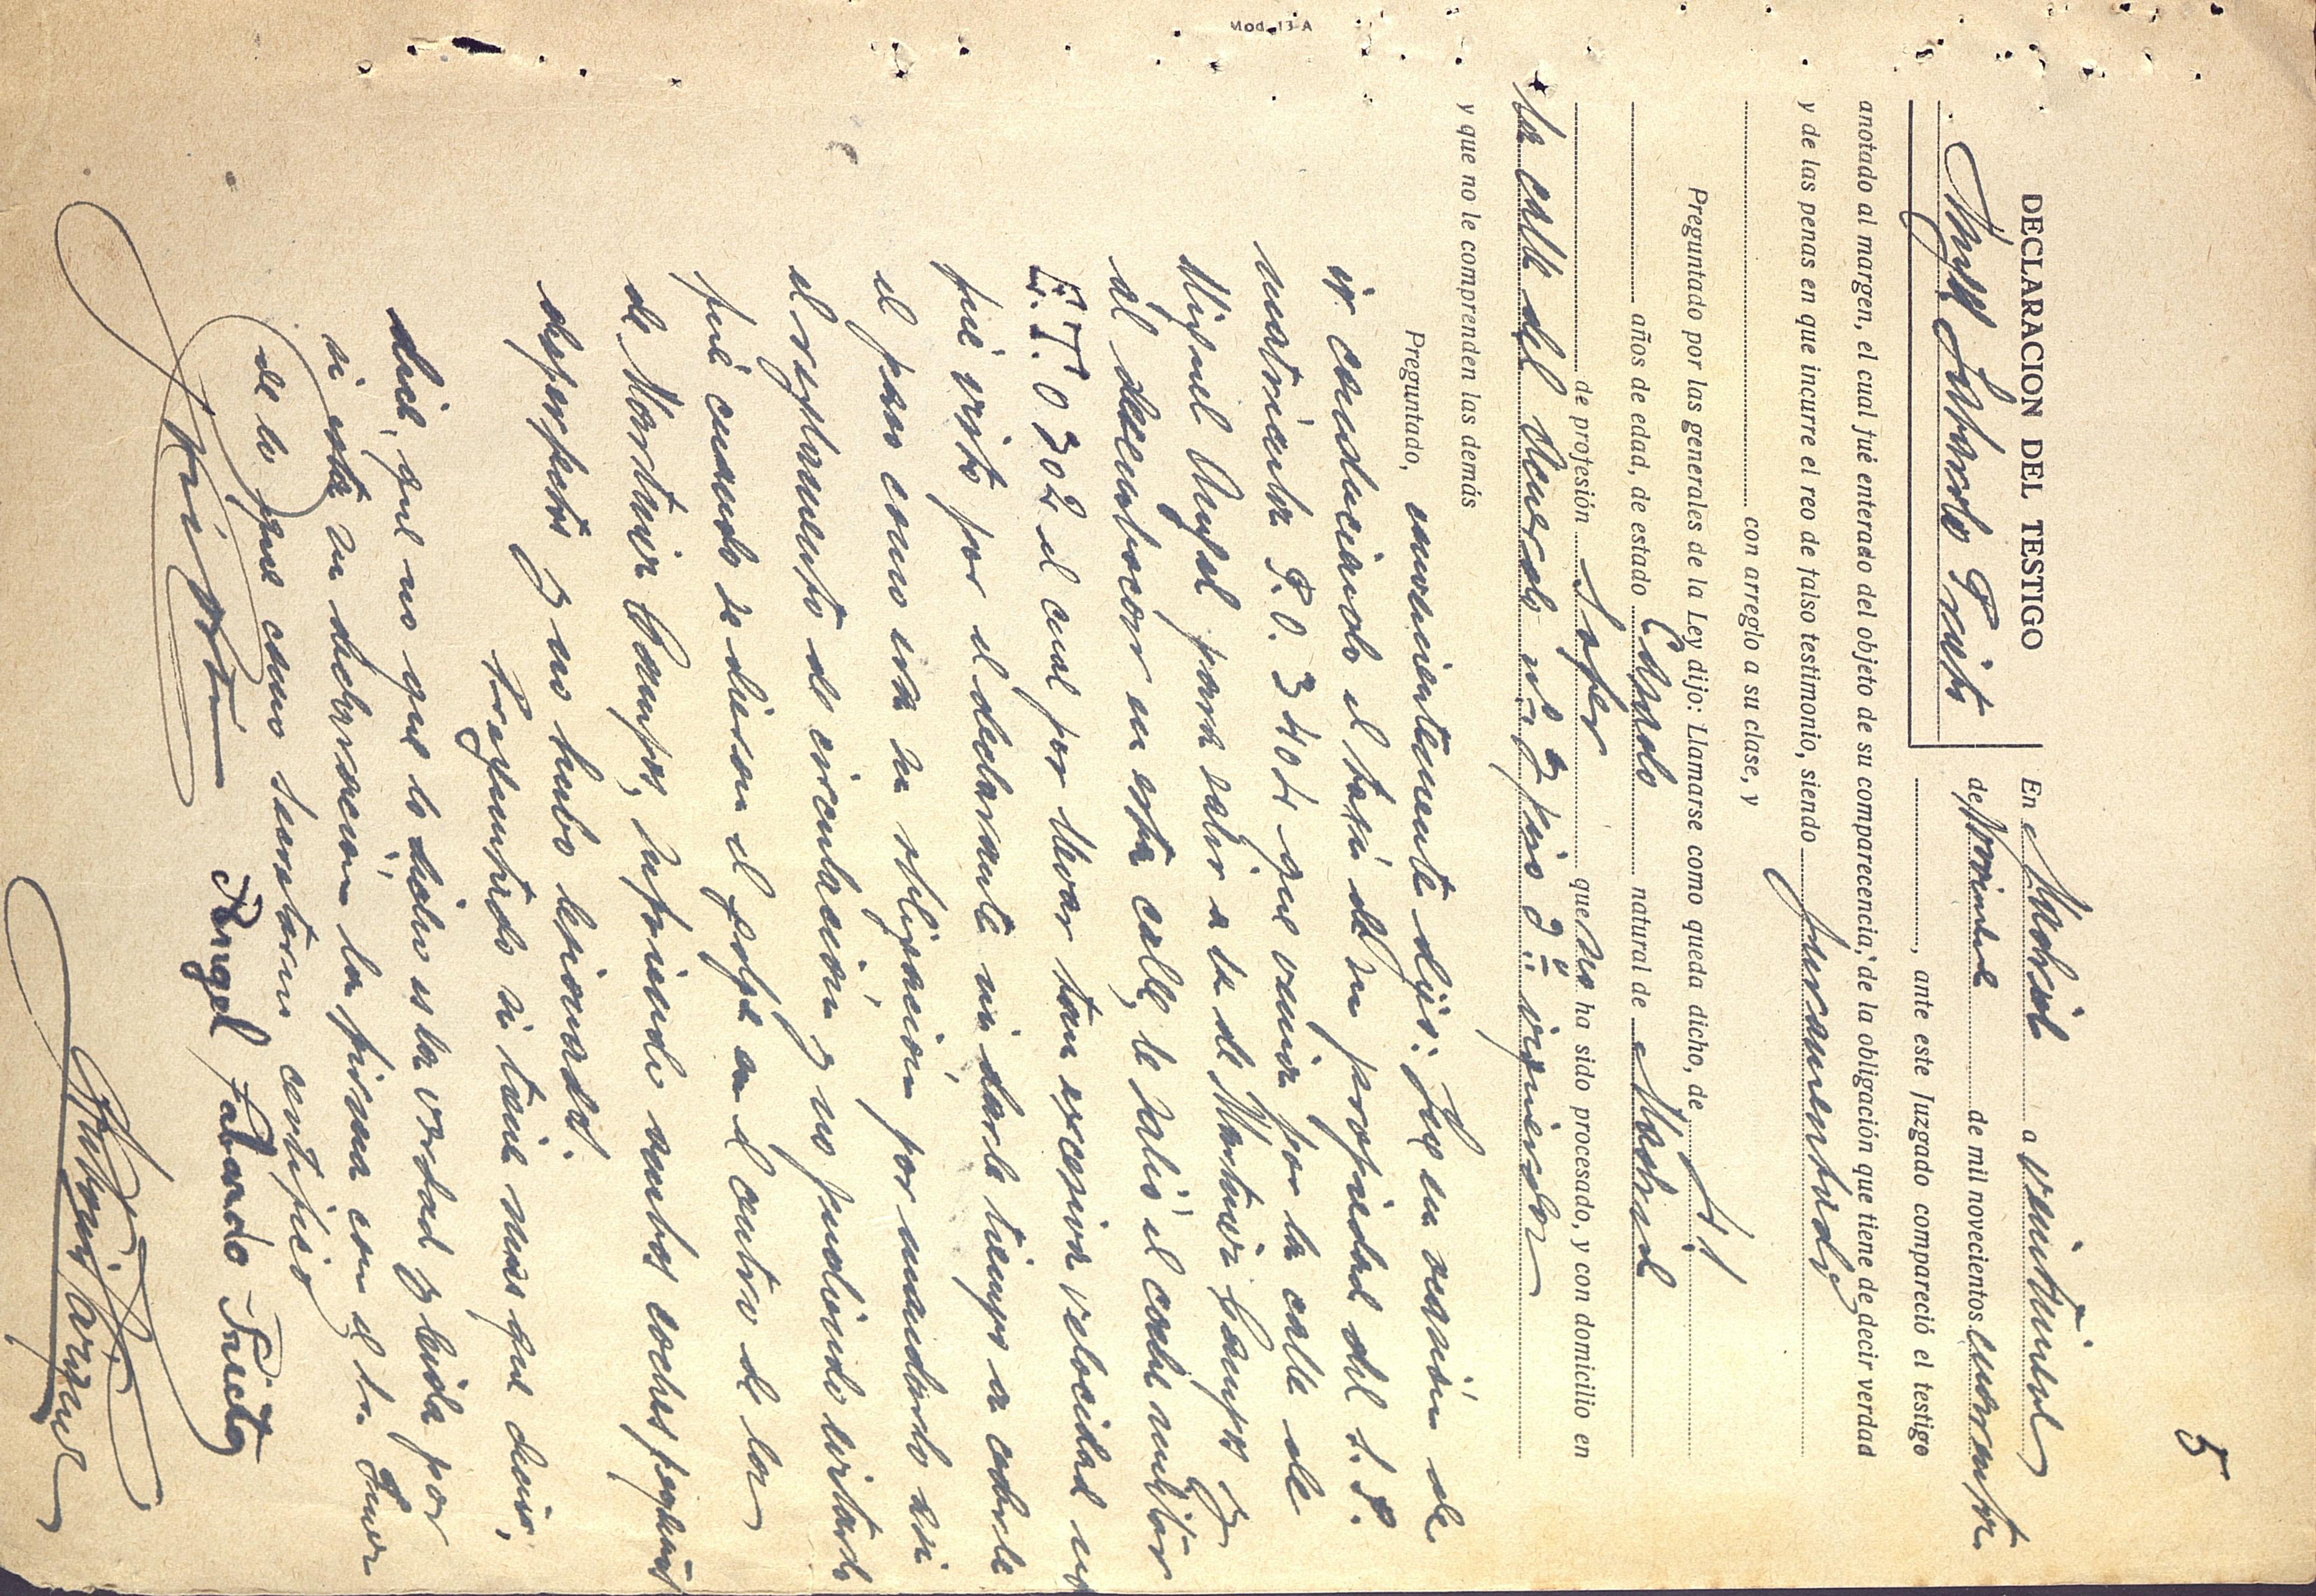 5
DECLARACION DEL TESTIGO
Angel Labardo Prieto
En Madrid a veintinueve
de Noviembre de mil novecientos cuarenta
, ante este Juzgado compareció el testigo
anotado al margen, el cual fué enterado del objeto de su comparecencia, de la obligación que tiene de decir verdad
y de las penas en que incurre el reo de falso testimonio, siendo juramentado
con arreglo a su clase, y
Preguntado por las generales de la Ley dijo: Llamarse como queda dicho, de 41
años de edad, de estado Casado natural de Madrid
de profesión Chofer que no ha sido procesado, y con domicilio en
la calle del Acuerdo nº 3 piso 3º
y que no le comprenden las demás
Preguntado, convenientemente dijo: Que en ocasión de
ir conduciendo el taxi de su propiedad del S.P.
matrícula P.O. 3404 que venía por la calle de
Miguel Angel para salir a la de Martinez Campos y
al desembocar en esta calle, le salió el coche militar
E.T. 0302 el cual por llevar tan excesiva velocidad no
fué visto por el declarante ni darle tiempo a cederle
el paso como era su obligación por mandarlo asi
el reglamento de circulación y no pudiendo evitarlo
fué cuando se dieron el golpe en el centro de los
de Martinez Campos, sufriendo ambos coches pequeños
desperfectos y no hubo lesionados.
Preguntado si tiene mas que decir,
dice, que no que lo dicho es la verdad y leida por
si esta su declaración la firma con el Sr Juez
de lo que como secretario certifico
Angel Labardo Prieto
Mod. 13-A